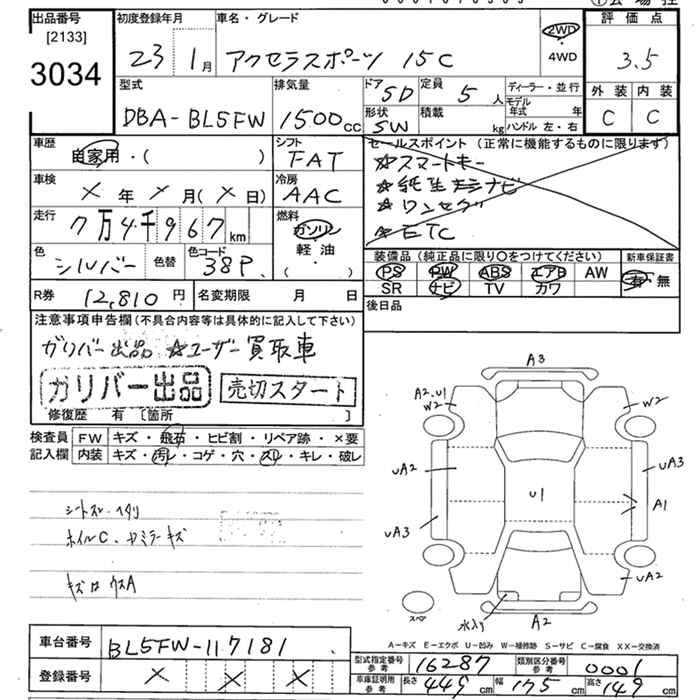 出品番号 初度登録年月 車名・グレード 評価点
[2133]
3034
23 1月 アクセラスポーツ 15C 2WD・4WD 3.5
型式 排気量 ドア 5D 定員 5人 ディーラー・並行 外装 内装
DBA-BL5FW 1500cc 形状 SW 積載 kg モデル年式 年 ハンドル 左・右 C C
車歴 自家用・( ) シフト FAT セールスポイント(正常に機能するものに限ります)
☆スマートキー
車検 × 年 × 月(× 日) 冷房 AAC
☆純正ナビ
☆ワンセグ
☆ETC
走行 7万4千967km 燃料 ガソリン・軽油・( )
色 シルバー 色替 色コード 38P
装備品(純正品に限り〇をつけてください) 新車保証書
PS PW ABS エアB AW 有・無
SR ナビ TV カワ
R券 12,810円 名変期限 月 日 後日品
注意事項申告欄(不具合内容等は具体的に記入して下さい)
ガリバー出品 ☆ユーザー買取車
ガリバー出品 売切スタート
修復歴 有 〔箇所 〕
検査員記入欄 FW キズ・飛石・ヒビ割・リペア跡・×要
内装 キズ・汚レ・コゲ・穴・スレ・キレ・破レ
ホイルC、ドアミラーキズ
キズ有 ウスA
A3
A2.U1
W2
W2
UA2
UA3
U1
A1
UA3
UA2
スペア
水入り
A2
A=キズ E=エクボ U=凹み W=補修跡 S=サビ C=腐食 XX=交換済
車台番号 BL5FW-117181
登録番号 × × ×
型式指定番号 参考 16287 類別区分番号 参考 0001
車庫証明用 参考 長さ 449cm 幅 175cm 高さ 149cm